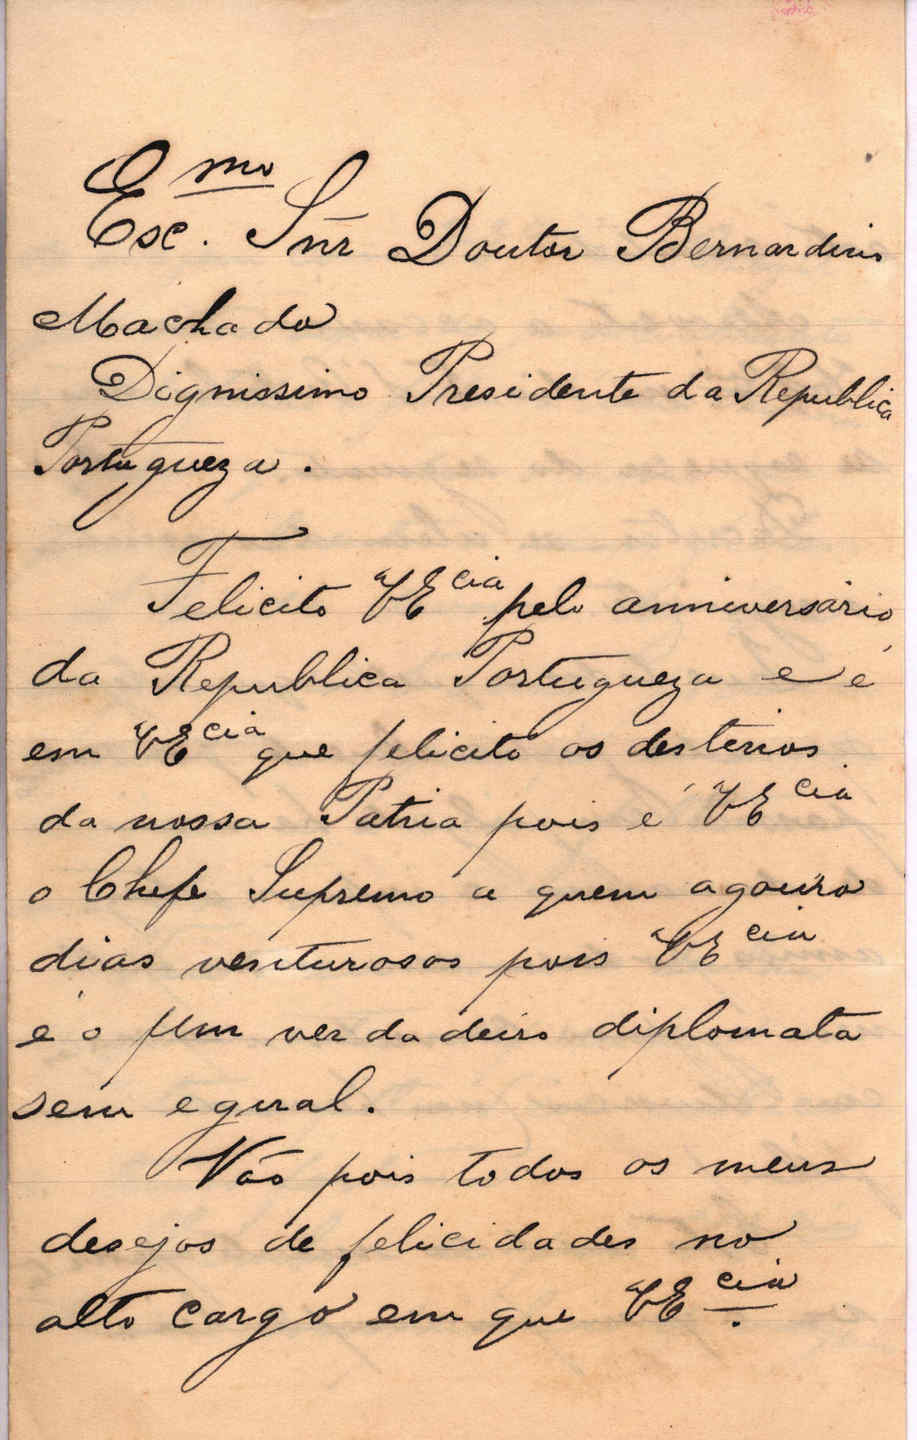 Exc.mo Snr Doutor Bernardino
Machado
Dignissimo Presidente da Republica
Portugueza.
Felicito VEcia pelo anniversario
da Republica Portugueza e é
em VEcia que felicito os destinos
da nossa Patria pois é VEcia
o Chefe Supremo a quem agouro
dias venturosos pois VEcia
é o fem verdadeiro diplomata
sem egual.
Vão pois todos os meus
desejos de felicidades no
alto cargo em que VEcia.